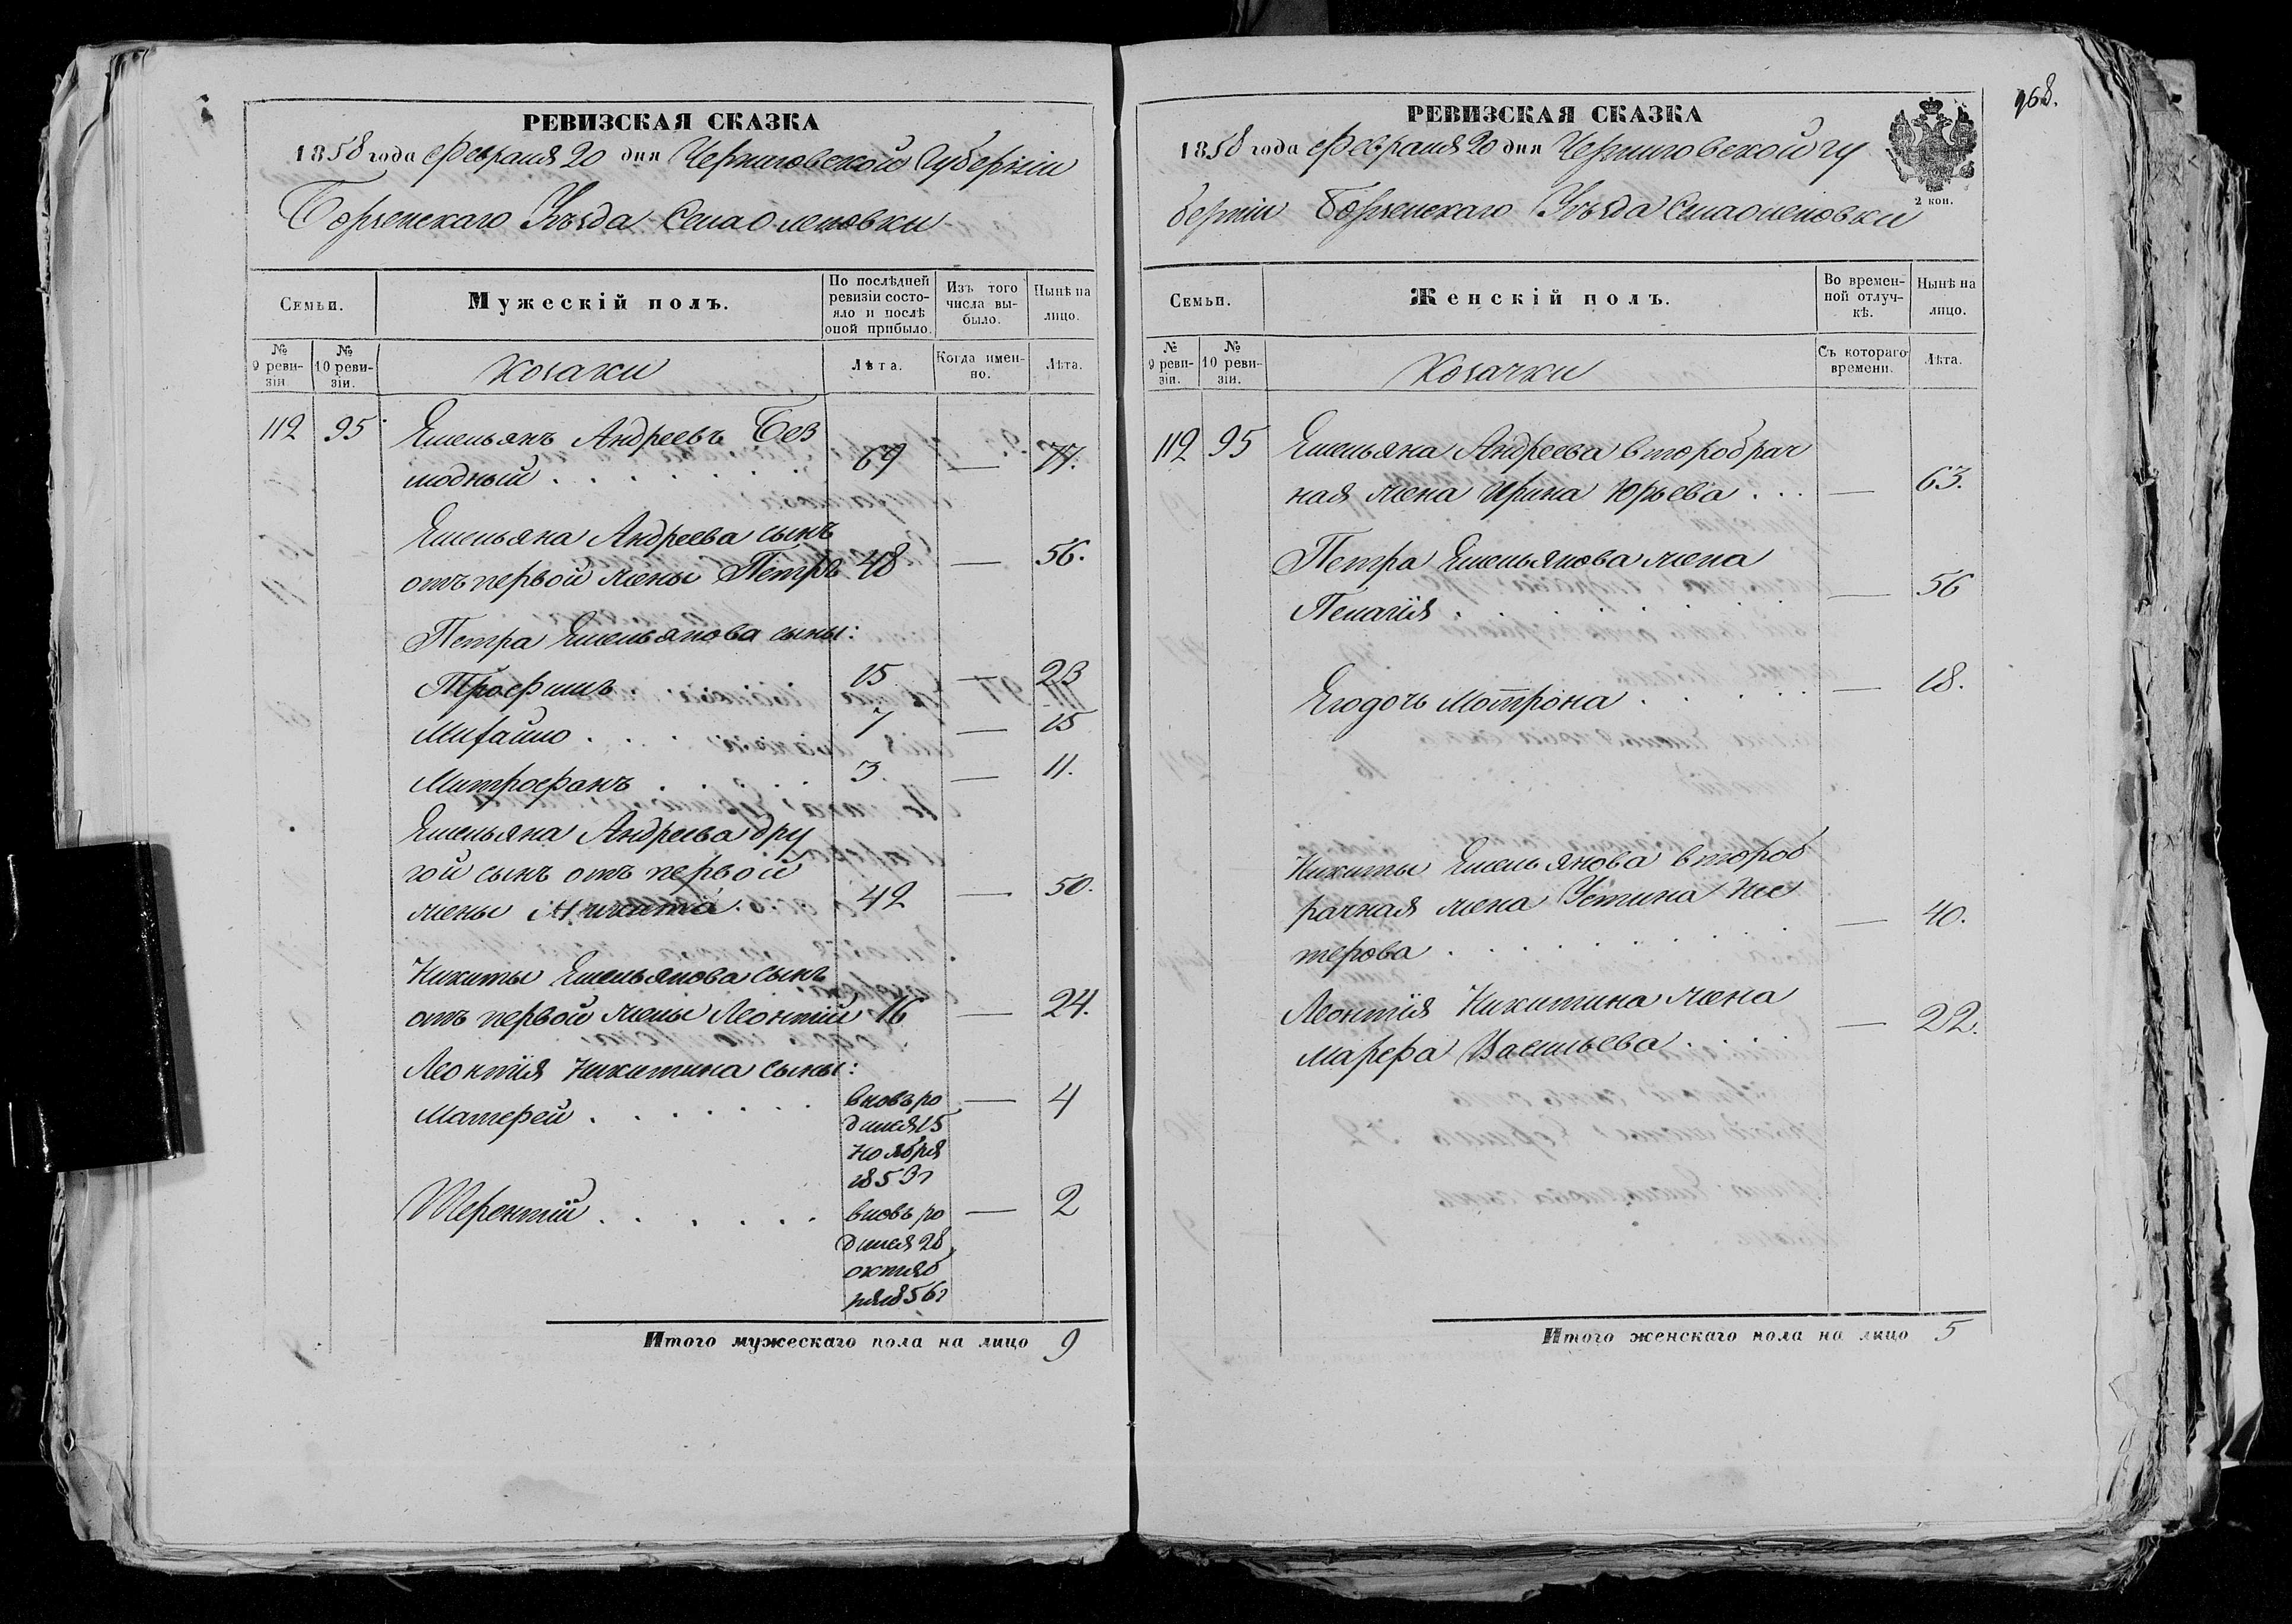 968.
РЕВИЗСКАЯ СКАЗКА
1858 года Февраля 20 дня Черниговской Губерніи
Борзенскаго Уѣзда Села Оленовки
Семьи.
Мужескій полъ.
По послѣдней ревизіи состояло и послѣ оной прибыло.
Изъ того числа выбыло.
Нынѣ на лицо.
№ 9 ревизіи.
№ 10 ревизіи.
Козаки
Лѣта.
Когда именно.
Лѣта.
112 95 Емельянъ Андреевъ Без
модный . . . . . . 69 — 77.
Емельяна Андреева сынъ
отъ первой жены Петръ 48 — 56.
Петра Емельянова сыны:
Трофимъ 15 — 23
Михайло . . . . 7 — 15
Митрофанъ . . . . . 3. — 11.
Емельяна Андреева дру
гой сынъ отъ первой
жены Никита 42 — 50.
Никиты Емельянова сынъ
отъ первой жены Леонтій 16 — 24.
Леонтія Никитина сыны:
Матфей . . . . . . . вновь ро — 4
дился 15
ноября
1853г
Терентій . . . . . . вновь ро — 2
дился 28
октяб
ря 1856г
Итого мужескаго пола на лицо 9
РЕВИЗСКАЯ СКАЗКА
1858 года Февраля 20 дня Черниговской гу
берніи Борзенскаго Уѣзда Села Оленовки
2 коп.
Семьи.
Женскій полъ.
Во временной отлучкѣ.
Нынѣ на лицо.
№ 9 ревизіи.
№ 10 ревизіи.
Козачки
Съ котораго времени.
Лѣта.
112 95 Емельяна Андреева второбрач
ная жена Ирина Юрьева . . . — 63.
Петра Емельянова жена
Пелагія . . . . . . . . — 56
Ягодочь Мотрона . . . . . — 18.
Никиты Емельянова второб
рачная жена Устина Нес
терова . . . . . . . . . — 40.
Леонтія Никитина жена
Марфа Васильева . . . . — 22.
Итого женскаго пола на лицо 5